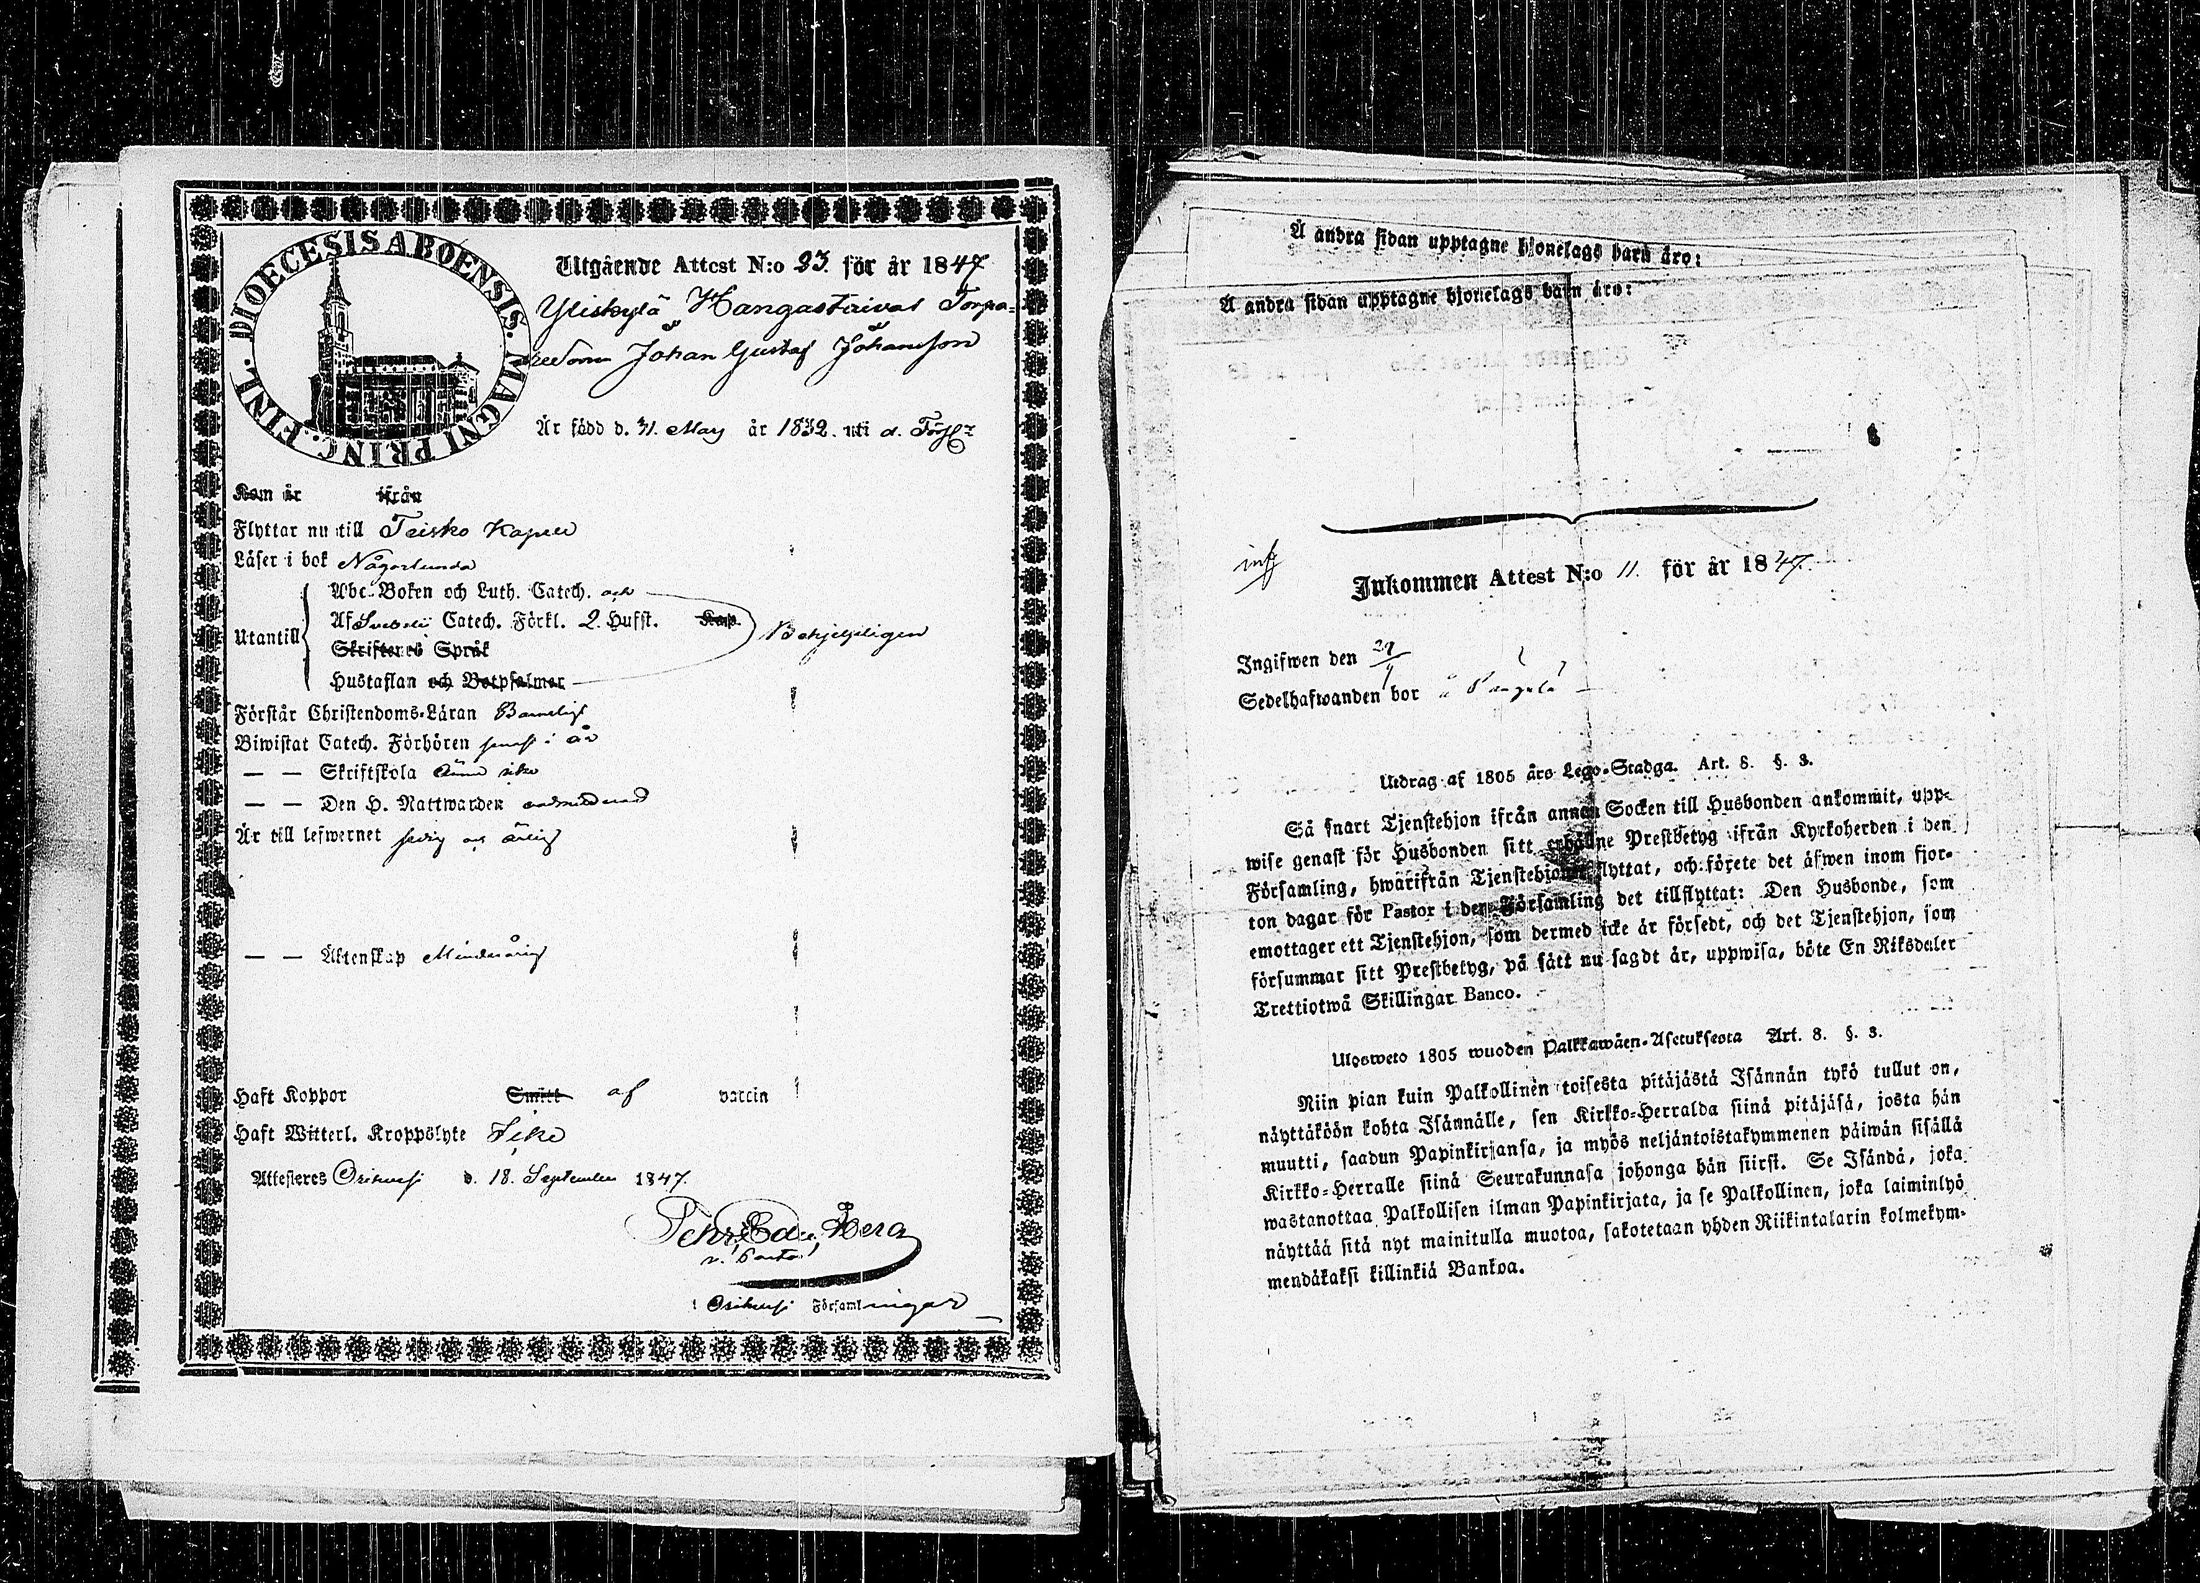 DIOECESIS ABOENSIS. MAGNI PRINC. FINL.
Utgående Attest N:o 23. för år 1847
Yliskylä Hangastaival Torpa=
resonn Johan Gustaf Johansson
Är född d. 31. May år 1832. uti d. Förs:
Kom år ifrån
Flyttar nu till Teisko Kapell
Läser i bok Någorlunda
Utantill
Abc-Boken och Luth. Catech. och
Af Svebelii Catech. Förkl. 2. Hufst. Kap.
Skriftenes Språk
Hustaflan och Botpsalmer
Behjelpligen
Förstår Christendoms-Läran Barnsligt
Biwistat Catech. Förhören senast i år
— — Skriftskola Ännu icke
— — Den H. Nattwarden
Är till lefwernet sedig och ärlig
— — Äktenskap Minderårig
Haft Koppor Smitt af vaccin
Haft Witterl. Kroppslyte Icke
Attesteres Orihvesi d. 18. September 1847.
v. Pastor
i Orihvesi Församlingar
Å andra sidan upptagne hjonelags barn äro:
Å andra sidan upptagne hjonelags barn äro:
Inkommen Attest N:o 11. för år 1847.
Ingifwen den 29/9
Sedelhafwanden bor å
Utdrag af 1805 års Lego-Stadga. Art. 8. §. 3.
Så snart Tjenstehjon ifrån annan Socken till Husbonden ankommit, upp-
wise genast för Husbonden sitt erhållne Prestbetyg ifrån Kyrkoherden i den
Församling, hwarifrån Tjenstehjonet flyttat, och förete det äfwen inom fjor-
ton dagar för Pastor i den Församling det tillflyttat: Den Husbonde, som
emottager ett Tjenstehjon, som dermed icke är försedt, och det Tjenstehjon, som
försummar sitt Prestbetyg, på sätt nu sagdt är, uppwisa, böte En Riksdaler
Trettiotwå Skillingar Banco.
Ulosweto 1805 wuoden Palkkawäen-Asetuksesta Art. 8. §. 3.
Niin pian kuin Palkollinen toisesta pitäjästä Isännän tykö tullut on,
näyttäköön kohta Isännälle, sen Kirkko-Herralda siinä pitäjäsä, josta hän
muutti, saadun Papinkirjansa, ja myös neljäntoistakymmenen päiwän sisällä
Kirkko-Herralle siinä Seurakunnasa johonga hän siirsi. Se Isändä, joka
wastanottaa Palkollisen ilman Papinkirjata, ja se Palkollinen, joka laiminlyö
näyttää sitä nyt mainitulla muotoa, sakotetaan yhden Riikintalarin kolmekym-
mendäkaksi killinkiä Bankoa.